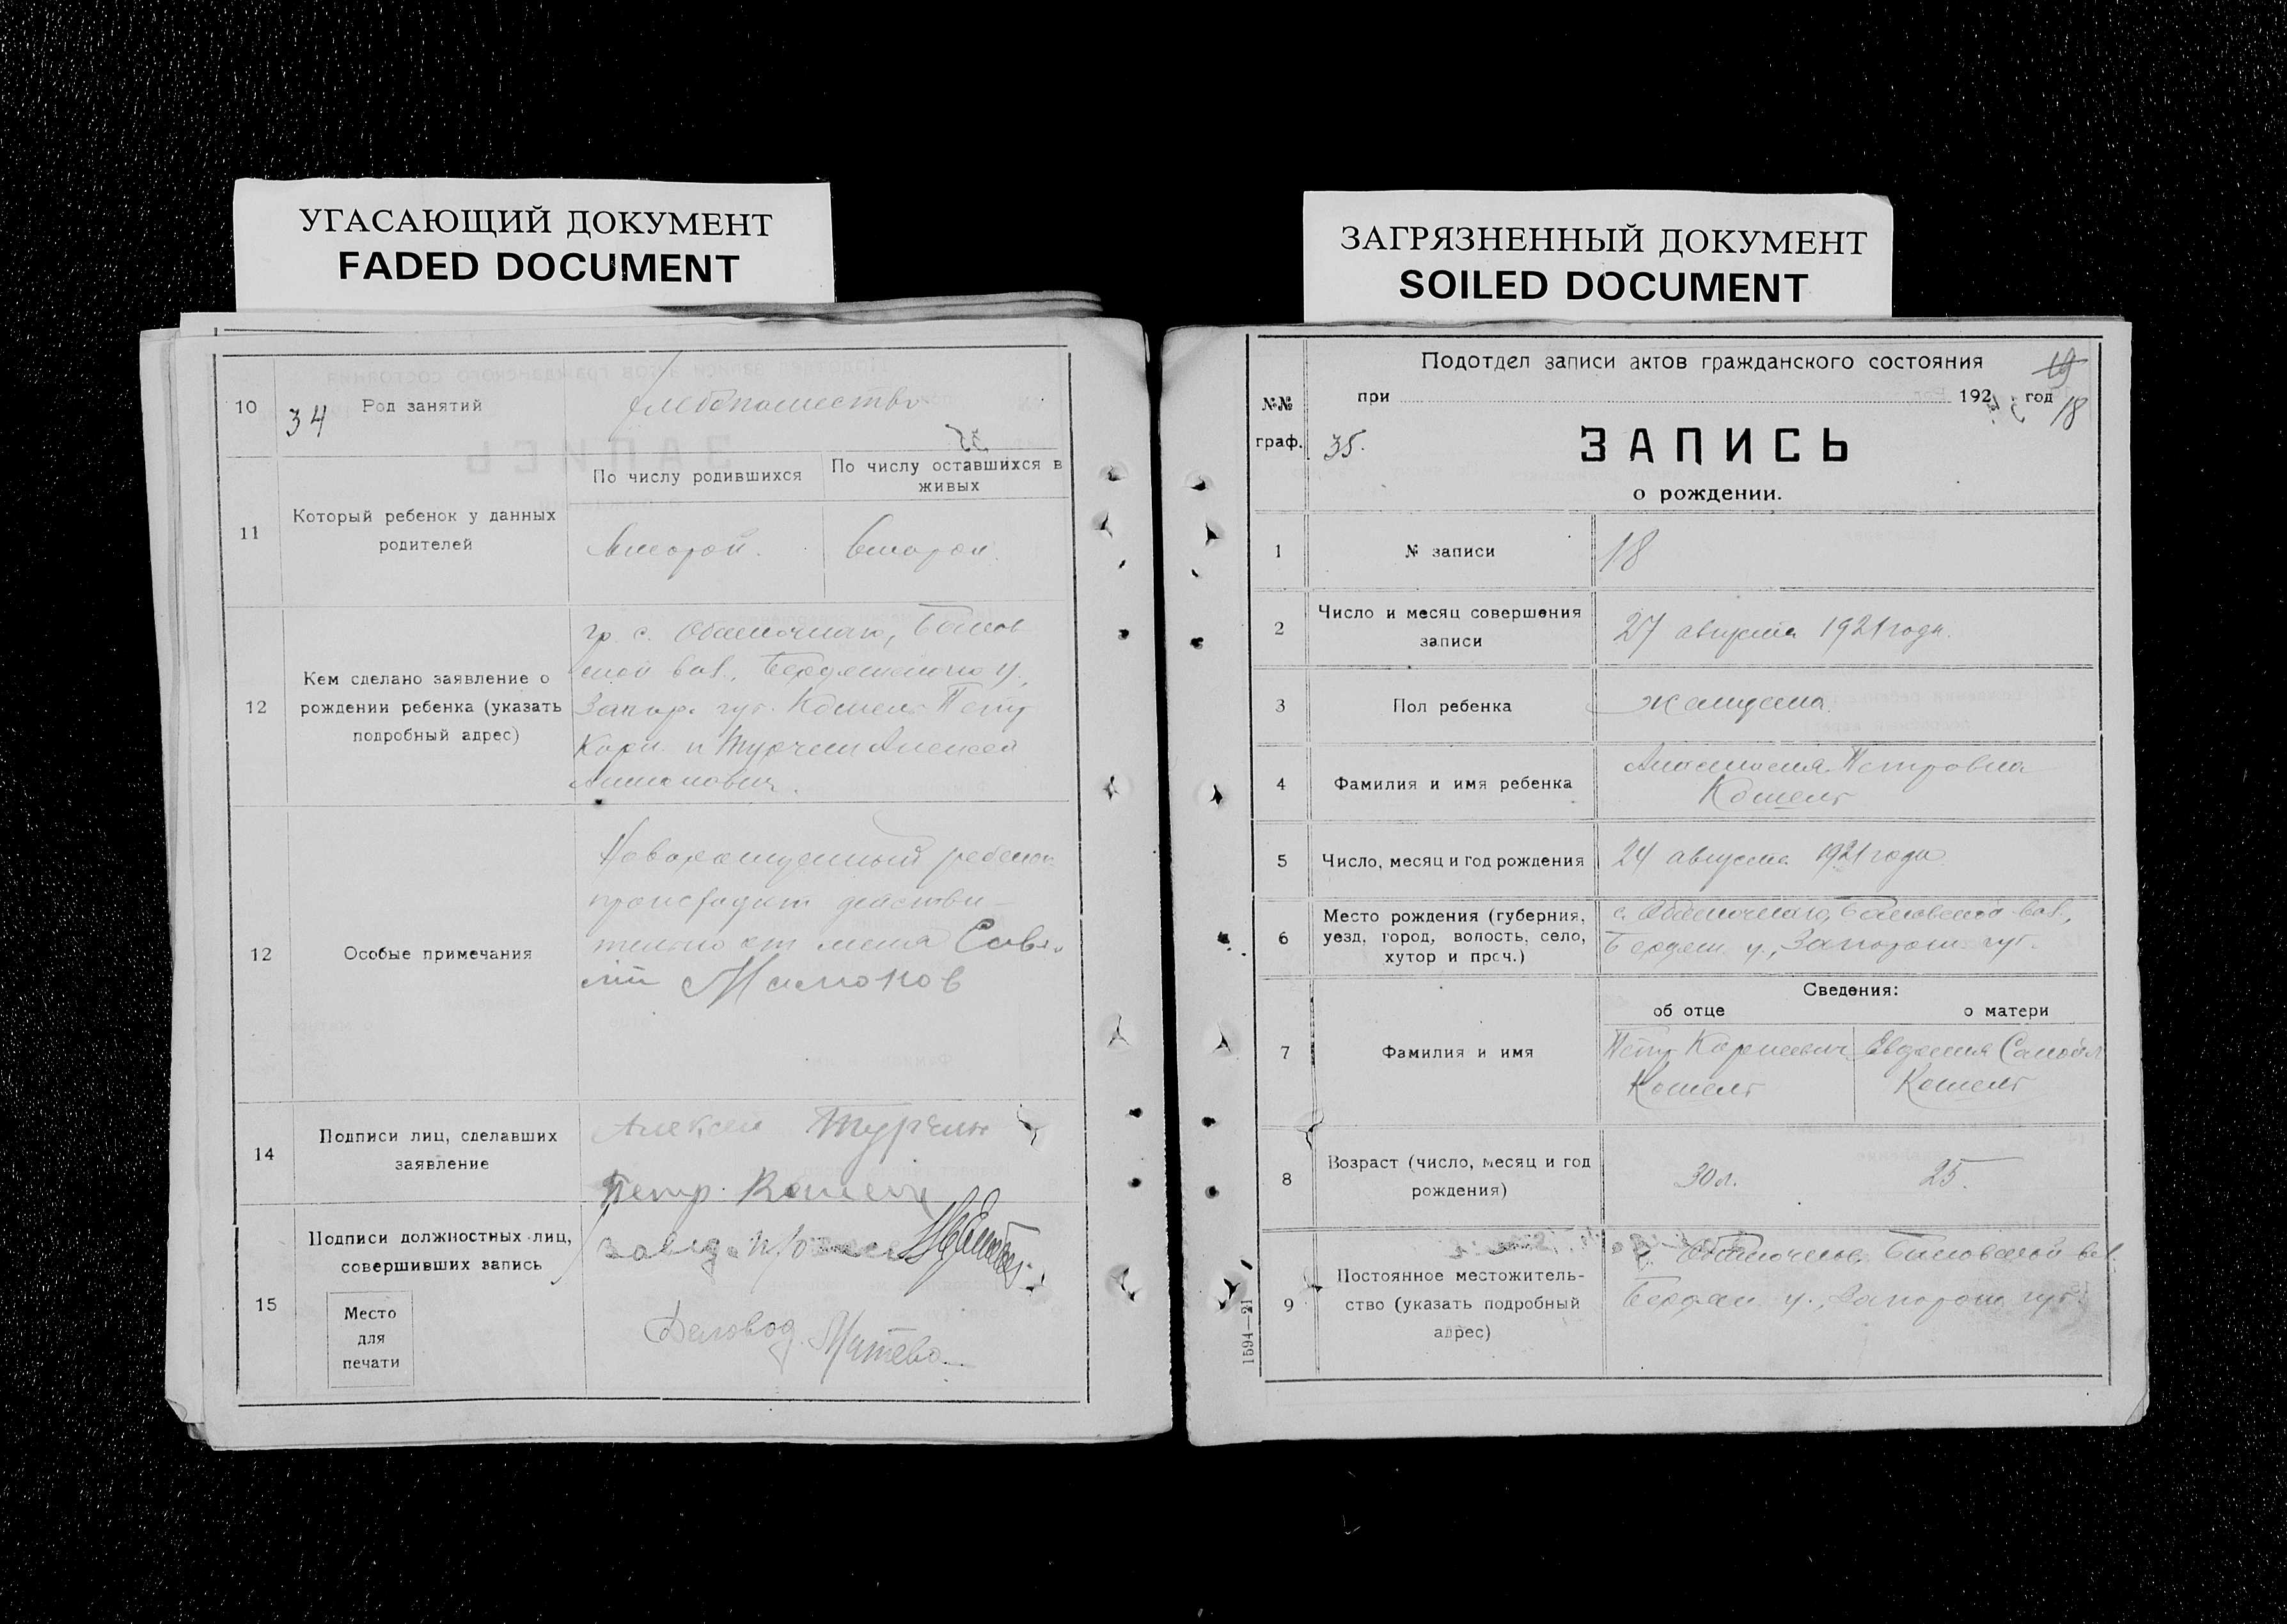 УГАСАЮЩИЙ ДОКУМЕНТ
FADED DOCUMENT
10
34
Род занятий
Хлебопашество
11
Который ребенок у данных
родителей
По числу родившихся
По числу оставшихся в
живых
Второй.
Второй.
12
Кем сделано заявление о
рождении ребенка (указать
подробный адрес)
гр. с.
вол., Бердянского у.,
Запор. губ. Кошель Петр
Корн. и Турчин Алексей
12
Особые примечания
Новорожденный ребенок
происходит действи-
тельно от меня
14
Подписи лиц, сделавших
заявление
Алексей Турчин
Петр Кошель
15
Подписи должностных лиц,
совершивших запись
Место
для
печати
Завед.
Деловод.
ЗАГРЯЗНЕННЫЙ ДОКУМЕНТ
SOILED DOCUMENT
№№
граф.
Подотдел записи актов гражданского состояния
19
при 192 год
18
35.
ЗАПИСЬ
о рождении.
1
№ записи
18
2
Число и месяц совершения
записи
27 августа 1921 года.
3
Пол ребенка
женщина.
4
Фамилия и имя ребенка
Анастасия Петровна
Кошель
5
Число, месяц и год рождения
24 августа 1921 года
6
Место рождения (губерния,
уезд, город, волость, село,
хутор и проч.)
вол.,
Бердян. у., Запорож. губ.
7
Фамилия и имя
Сведения:
об отце
о матери
Петр Корнеевич
Кошель
Евдокия
Кошель
8
Возраст (число, месяц и год
рождения)
30 л.
25.
9
Постоянное местожитель-
ство (указать подробный
адрес)
вол.
Бердян. у., Запорож. губ.
1594—21